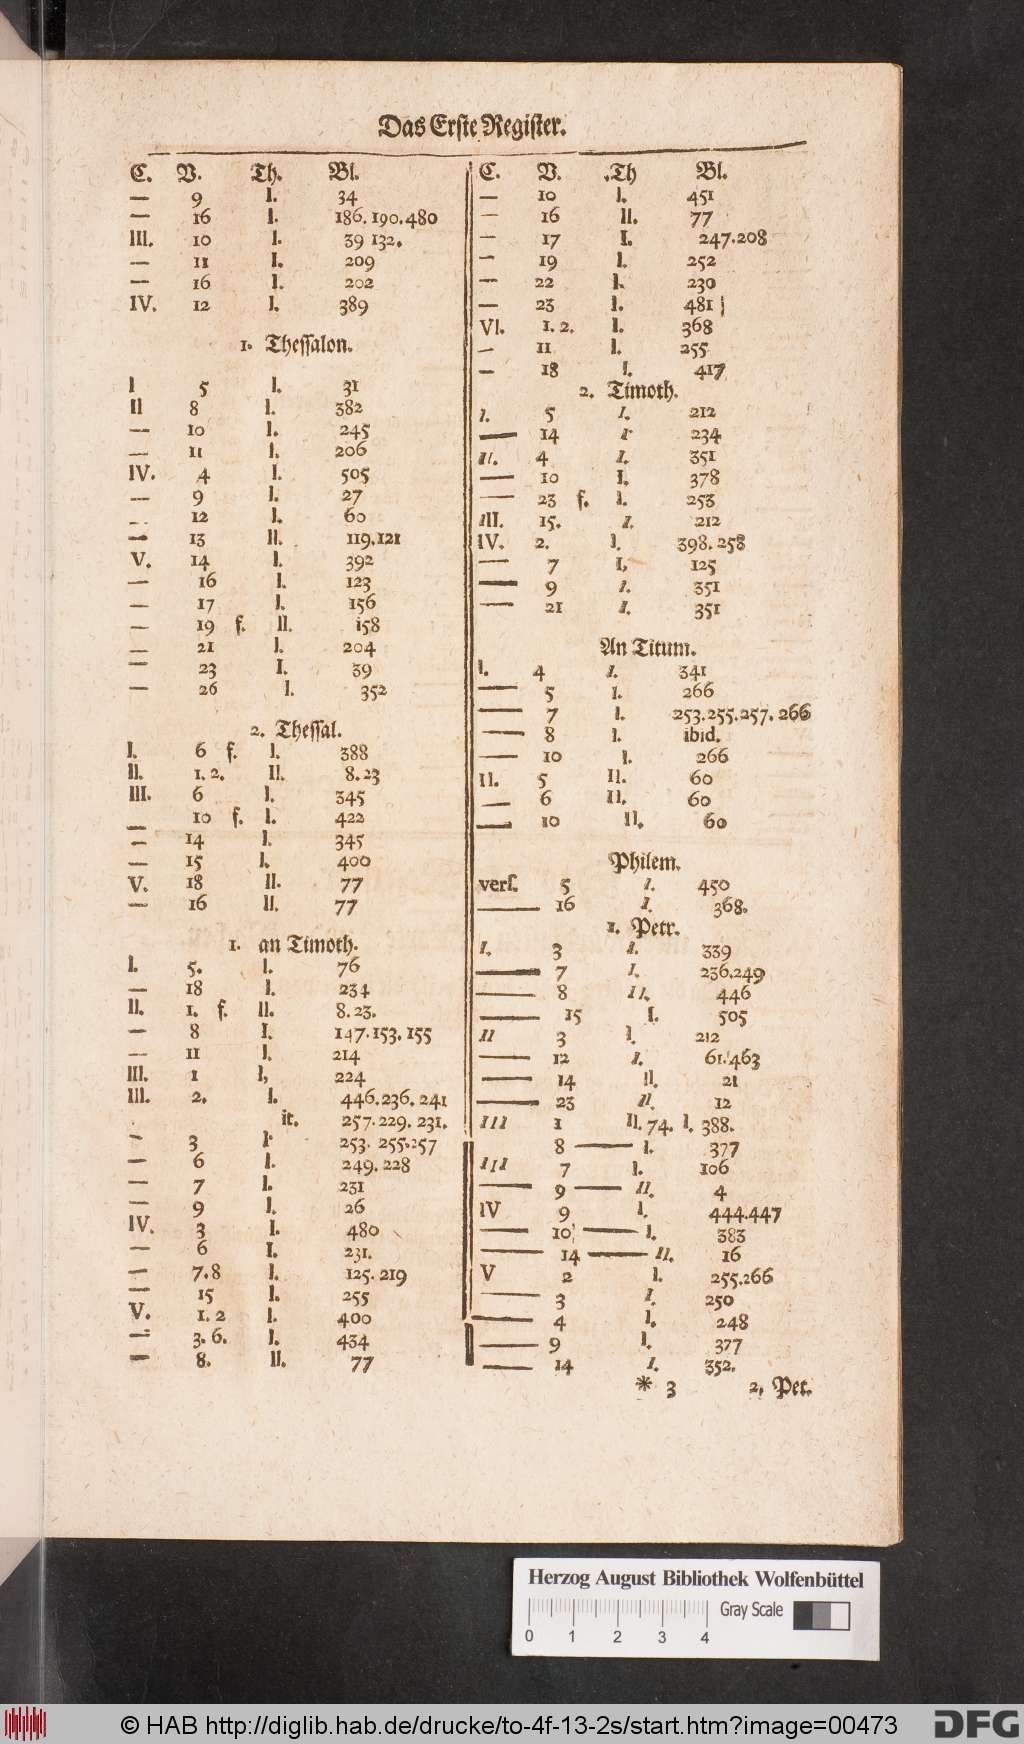 Das Erste Register.
C. V. Th. Bl.
— 9 I. 34
— 16 I. 186. 190. 480
III. 10 I. 39 132.
— 11 I. 209
— 16 I. 202
IV. 12 I. 389
1. Thessalon.
I 5 I. 31
II 8 I. 382
— 10 I. 245
— 11 I. 206
IV. 4 I. 505
— 9 I. 27
— 12 I. 60
— 13 II. 119.121
V. 14 I. 392
— 16 I. 123
— 17 I. 156
— 19 f. II. 158
— 21 I. 204
— 23 I. 39
— 26 I. 352
2. Thessal.
I. 6 f. I. 388
II. 1. 2. II. 8. 23
III. 6 I. 345
— 10 f. I. 422
— 14 I. 345
— 15 I. 400
V. 18 II. 77
— 16 II. 77
1. an Timoth.
I. 5. I. 76
— 18 I. 234
II. 1. f. II. 8. 23.
— 8 I. 147. 153. 155
— 11 I. 214
III. 1 I, 224
III. 2. I. 446.236. 241
it. 257. 229. 231.
— 3 I. 253. 255.257
— 6 I. 249. 228
— 7 I. 231
— 9 I. 26
IV. 3 I. 480
— 6 I. 231.
— 7.8 I. 125. 219
— 15 I. 255
V. 1. 2 I. 400
— 3. 6. I. 434
— 8. II. 77
C. V. .Th Bl.
— 10 I. 451
— 16 II. 77
— 17 I. 247.208
— 19 I. 252
— 22 I. 230
— 23 I. 481
VI. 1. 2. I. 368
— 11 I. 255
— 18 I. 417
2. Timoth.
I. 5 I. 212
— 14 I 234
II. 4 I. 351
— 10 I. 378
— 23 f. I. 253
III. 15. I. 212
IV. 2. I. 398. 258
— 7 I, 125
— 9 I. 351
— 21 I. 351
An Titum.
I. 4 I. 341
— 5 I. 266
— 7 I. 253.255.257. 266
— 8 I. ibid.
— 10 I. 266
II. 5 II. 60
— 6 II. 60
— 10 II. 60
Philem.
vers. 5 I. 450
— 16 I. 368.
1. Petr.
I. 3 I. 339
— 7 I. 236.249
— 8 II. 446
— 15 I. 505
II 3 I. 212
— 12 I. 61.463
— 14 II. 21
— 23 II. 12
III 1 II. 74. I. 388.
8 — I. 377
III 7 I. 106
— 9 — II. 4
IV 9 I. 444.447
— 10 — I. 383
— 14 — II. 16
V 2 I. 255.266
— 3 I. 250
— 4 I. 248
— 9 I. 377
— 14 I. 352.
* 3 2. Pet.
Herzog August Bibliothek Wolfenbüttel
Gray Scale
0 1 2 3 4
© HAB http://diglib.hab.de/drucke/to-4f-13-2s/start.htm?image=00473
DFG